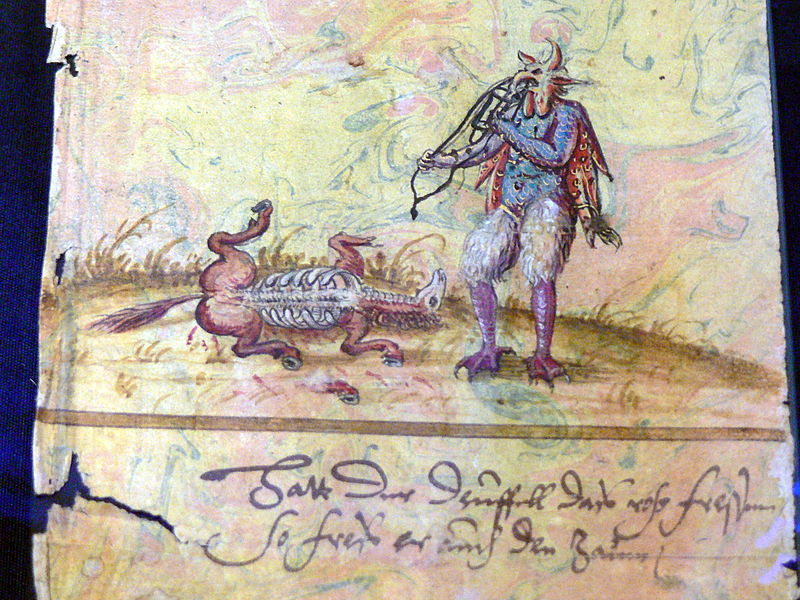 Hatt Der Deüffell das roß freßen
So fres er auch den Zaum